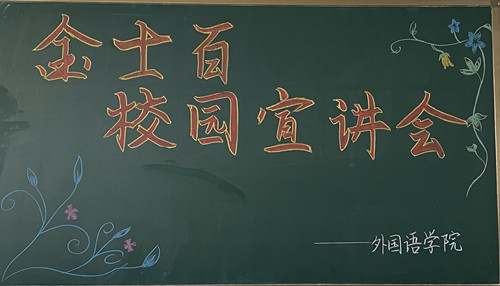 金士百
校园宣讲会
——外国语学院